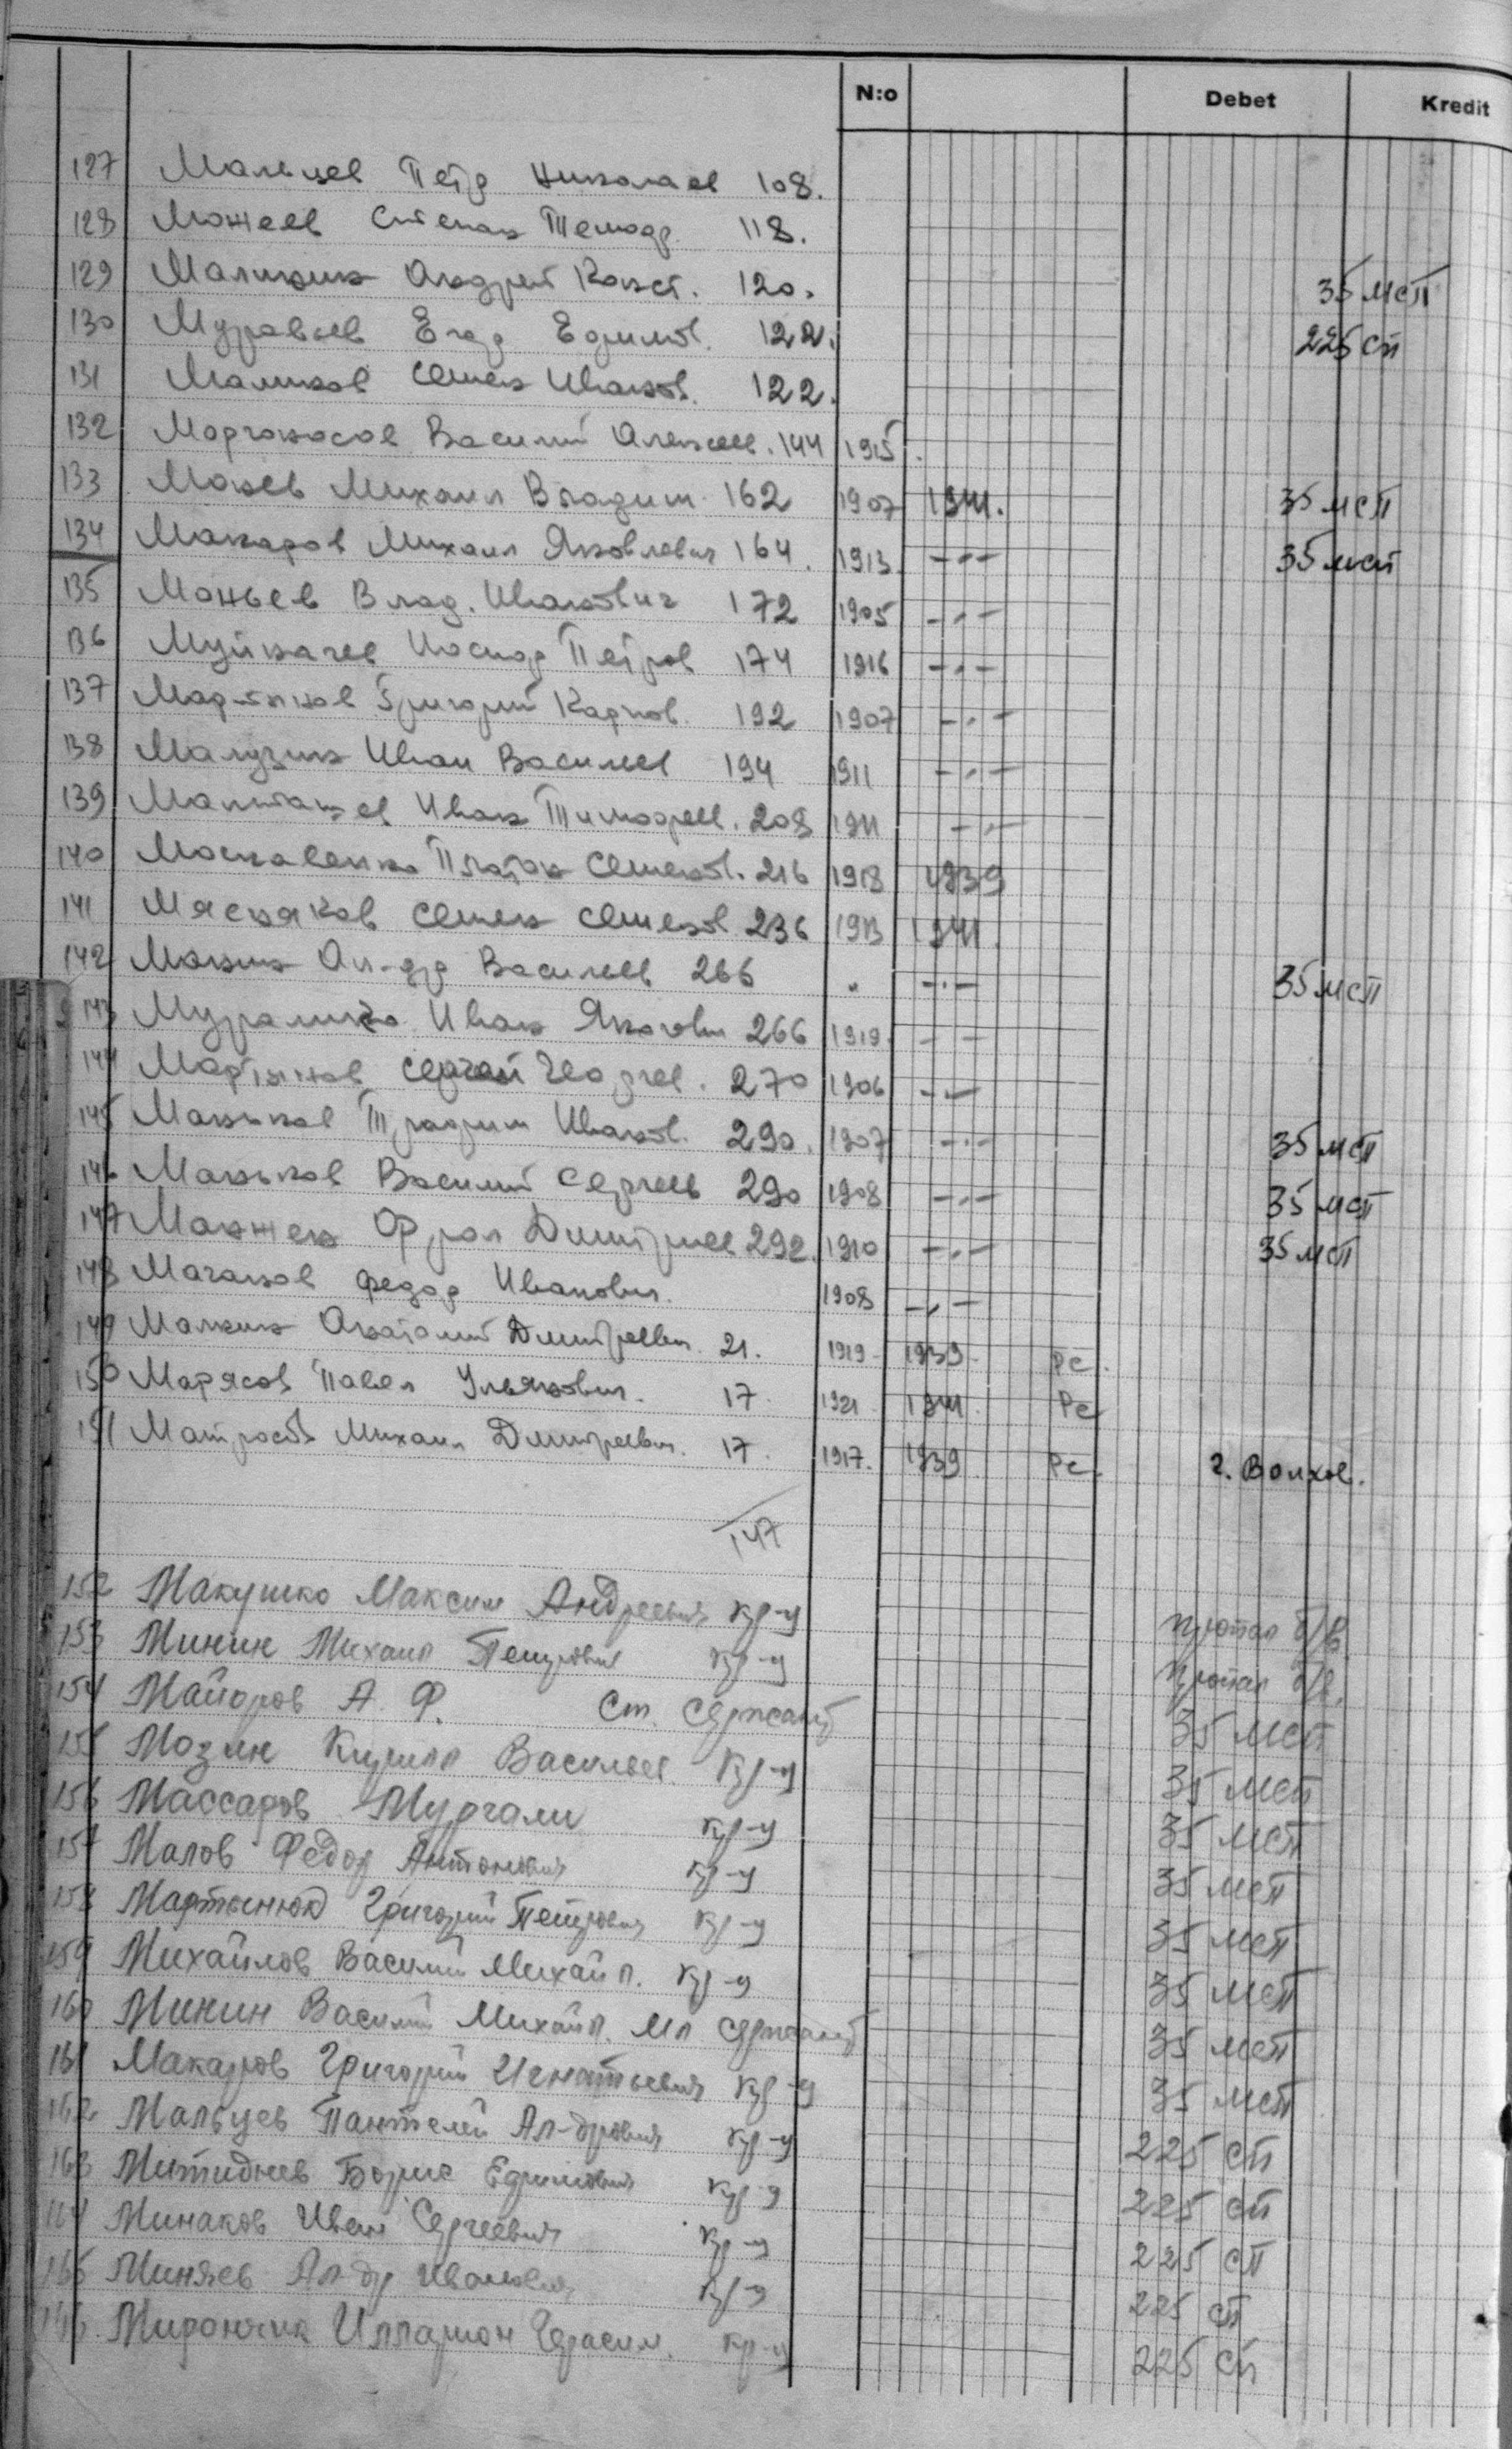 N:o Debet Kredit
127 Мальцев Петр Николаев 108.
128 Можеев Степан 118.
129 Андрей Конст. 120. 35 мсп
130 Муравьев Егор Ефимов. 122. 225 сп
131 Маликов Семен Иванов. 122.
132 Василий Алексеев. 144 1915.
133 Михаил Владим. 162 1907 1941. 35 мсп
134 Макаров Михаил Яковлевич 164. 1913. -"- 35 мсп
135 Влад. Иванович 172 1905 -"-
136 Иосиф Петров 174 1916 -"-
137 Мартынов Григорий Карпов. 192 1907 -"-
138 Малузин Иван Васильев 194 1911 -"-
139 Иван Тимофеев. 208 1911 -"-
140 Москаленко Платон Семенов. 216 1918 1939
141 Мясняков Семен Семенов 236 1913 1941.
142 Ал-др Васильев 266 " -"- 35 мсп
143 Иван 266 1919. - -
144 Мартынов Сергей Георгиев. 270 1906 -"-
145 Маньков Трофим Иванов. 290. 1907 -"- 35 мсп
146 Маньков Василий Сергеев 290 1908 -"- 35 мсп
147 Фрол Дмитриев 292. 1910 -"- 35 мсп
148 Федор Иванович. 1908 -"-
149 Малкин Анатолий Дмитриевич. 21. 1919 - 1939 - РС.
150 Марясов Павел Ульянович. 17. 1921. 1941. РС
151 Матросов Михаил Дмитриевич. 17. 1917. 1939 РС. г. Волхов.
147
152 Макушко Максим Андреевич кр-ц пропал б/в.
153 Минин Михаил Петрович кр-ц пропал б/в.
154 Майоров А. Ф. Ст. сержант 35 мсп
155 Мозин Кирилл Васильев. кр-ц 35 мсп
156 Массаров Мургали кр-ц 35 мсп
157 Малов Федор Антонович кр-ц 35 мсп
158 Мартынюк Григорий Петрович кр-ц 35 мсп
159 Михайлов Василий Михайл. кр-ц 35 мсп
160 Минин Василий Михайл. Мл. сержант 35 мсп
161 Макаров Григорий Игнатьевич кр-ц 35 мсп
162 Мальцев Пантелей Ал-дрович кр-ц 225 сп
163 Борис Ефимович кр-ц 225 сп
164 Минаков Иван Сергеевич кр-ц 225 сп
165 Миняев Ал-др Иванович кр-ц 225 сп
166. Илларион Герасим. кр-ц 225 сп